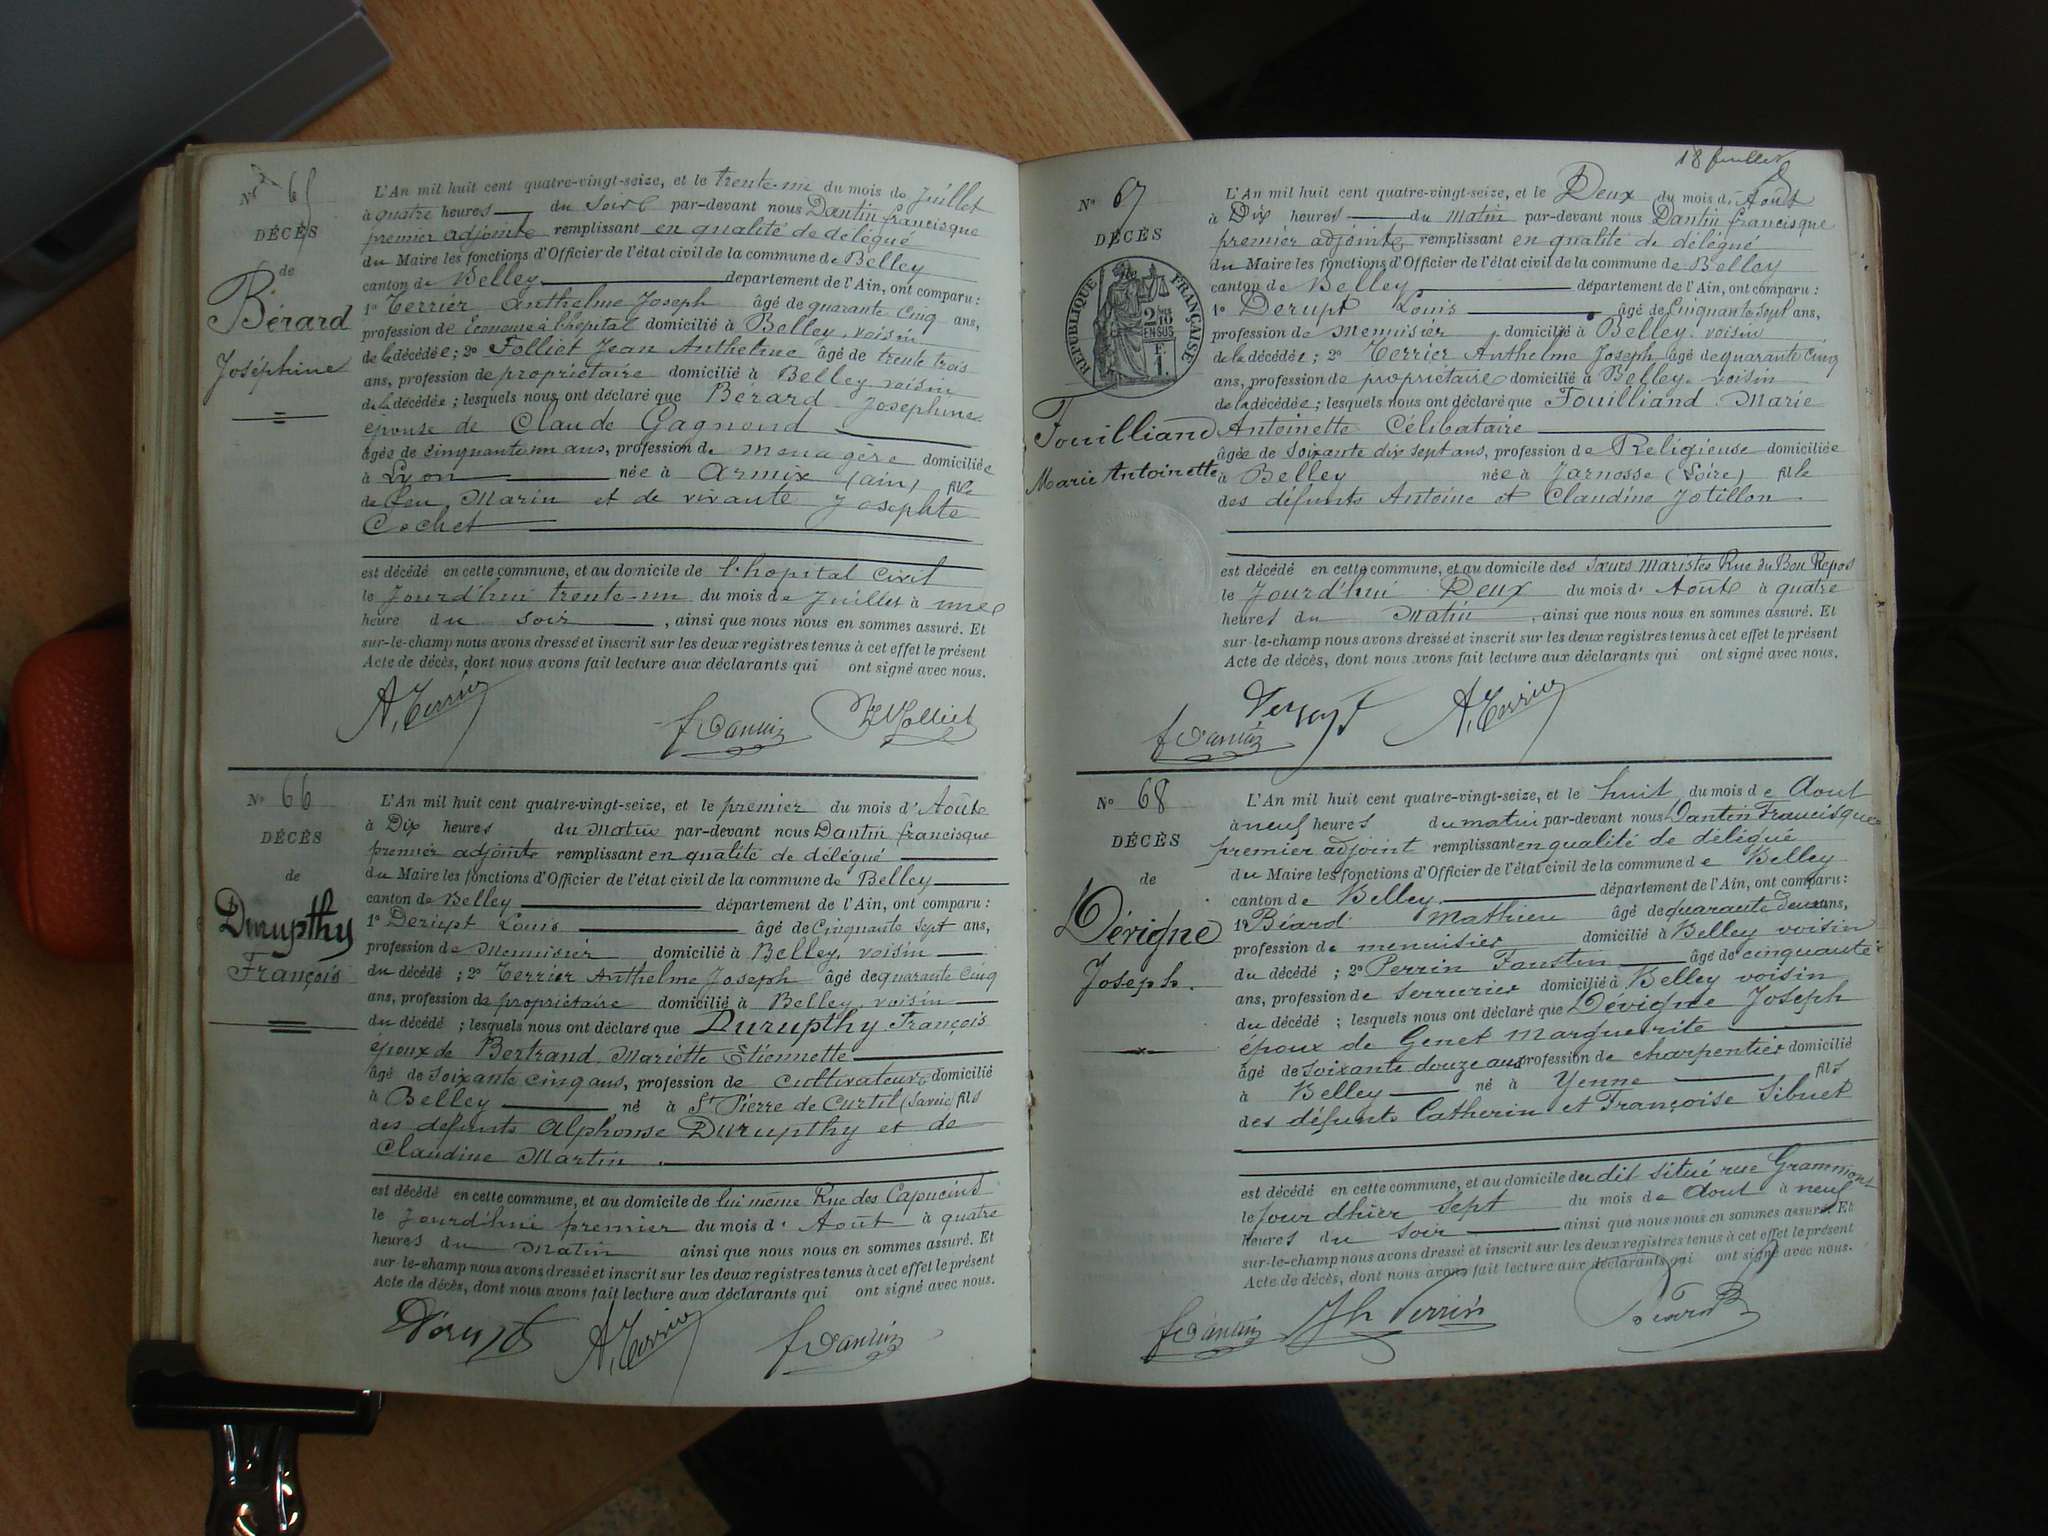 N° 65
DÉCÈS
de
Bérard
Joséphine
L'An mil huit cent quatre-vingt-seize, et le trente-un du mois de Juillet
à quatre heures du Soir par-devant nous Dantin francisque
premier adjoint remplissant en qualité de délégué
du Maire les fonctions d'Officier de l'état civil de la commune de Belley
canton de Belley département de l'Ain, ont comparu :
1° Terrier Anthelme Joseph âgé de quarante cinq ans,
profession de Econome à l'hopital domicilié à Belley, voisin
de la décédée ; 2° Folliet Jean Anthelme âgé de trente trois
ans, profession de propriétaire domicilié à Belley voisin
de la décédée ; lesquels nous ont déclaré que Bérard Josephine
épouse de Claude Gagnond
âgée de cinquante un ans, profession de menagère domiciliée
à Lyon née à Armix (ain) fille
de feu Marin et de vivante Josephte
Cochet
est décédé en cette commune, et au domicile de l'hopital civil
le Jourd'hui trente-un du mois de Juillet à une
heure du soir, ainsi que nous nous en sommes assuré. Et
sur-le-champ nous avons dressé et inscrit sur les deux registres tenus à cet effet le présent
Acte de décès, dont nous avons fait lecture aux déclarants qui ont signé avec nous.
A, Terrier
f Dantin
Folliet
N° 66
DÉCÈS
de
Durupthy
François
L'An mil huit cent quatre-vingt-seize, et le premier du mois d'Août
à Dix heures du Matin par-devant nous Dantin francisque
premier adjoint remplissant en qualité de délégué
du Maire les fonctions d'Officier de l'état civil de la commune de Belley
canton de Belley département de l'Ain, ont comparu :
1° Derupt Louis âgé de Cinquante sept ans,
profession de Menuisier domicilié à Belley, voisin
du décédé ; 2° Terrier Anthelme Joseph âgé de quarante cinq
ans, profession de propriétaire domicilié à Belley, voisin
du décédé ; lesquels nous ont déclaré que Durupthy François
époux de Bertrand Mariette Etiennette
âgé de soixante cinq ans, profession de cultivateur domicilié
à Belley né à St Pierre de Curtil (Savoie) fils
des défunts Alphonse Durupthy et de
Claudine Martin.
est décédé en cette commune, et au domicile de lui même Rue des Capucins
le Jourd'hui premier du mois d'Août à quatre
heures du Matin ainsi que nous nous en sommes assuré. Et
sur-le-champ nous avons dressé et inscrit sur les deux registres tenus à cet effet le présent
Acte de décès, dont nous avons fait lecture aux déclarants qui ont signé avec nous.
Derupt
A, Terrier
f Dantin
18 feuillet
N° 67
DÉCÈS
RÉPUBLIQUE FRANÇAISE
2/10 EN SUS
F.
1.
Fouilliand
Marie Antoinette
L'An mil huit cent quatre-vingt-seize, et le Deux du mois d'Août
à Dix heures du Matin par-devant nous Dantin francisque
premier adjoint remplissant en qualité de délégué
du Maire les fonctions d'Officier de l'état civil de la commune de Belley
canton de Belley département de l'Ain, ont comparu :
1° Derupt Louis âgé de Cinquante sept ans,
profession de Menuisier, domicilié à Belley. voisin
de la décédée ; 2° Terrier Anthelme Joseph âgé de quarante cinq
ans, profession de propriétaire domicilié à Belley. voisin
de la décédée ; lesquels nous ont déclaré que Fouilliand Marie
Antoinette Célibataire
âgée de soixante dix sept ans, profession de Religieuse domiciliée
à Belley née à Jarnosse (Loire) fille
des défunts Antoine et Claudine Jotillon
est décédé en cette commune, et au domicile des Sœurs Maristes Rue du Bon Repos
le Jourd'hui Deux du mois d'Août à quatre
heures du Matin, ainsi que nous nous en sommes assuré. Et
sur-le-champ nous avons dressé et inscrit sur les deux registres tenus à cet effet le présent
Acte de décès, dont nous avons fait lecture aux déclarants qui ont signé avec nous.
Derupt
A, Terrier
f Dantin
N° 68
DÉCÈS
de
Dévigne
Joseph.
L'An mil huit cent quatre-vingt-seize, et le huit du mois de Aout
à neuf heures du matin par-devant nous Dantin Francisque
premier adjoint remplissant en qualité de délégué
du Maire les fonctions d'Officier de l'état civil de la commune de Belley
canton de Belley département de l'Ain, ont comparu :
1° Béard Mathieu âgé de quarante deux ans,
profession de menuisier domicilié à Belley voisin
du décédé ; 2° Perrin Faustin âgé de cinquante
ans, profession de serrurier domicilié à Belley voisin
du décédé ; lesquels nous ont déclaré que Dévigne Joseph
époux de Genet Marguerite
âgé de soixante douze ans profession de charpentier domicilié
à Belley né à Yenne fils
des défunts Catherin et Françoise Sibuet
est décédé en cette commune, et au domicile du dit situé rue Grammont
le jour d'hier sept du mois de Aout à neuf
heures du soir ainsi que nous nous en sommes assuré. Et
sur-le-champ nous avons dressé et inscrit sur les deux registres tenus à cet effet le présent
Acte de décès, dont nous avons fait lecture aux déclarants qui ont signé avec nous.
f Dantin
Perrin
Béard